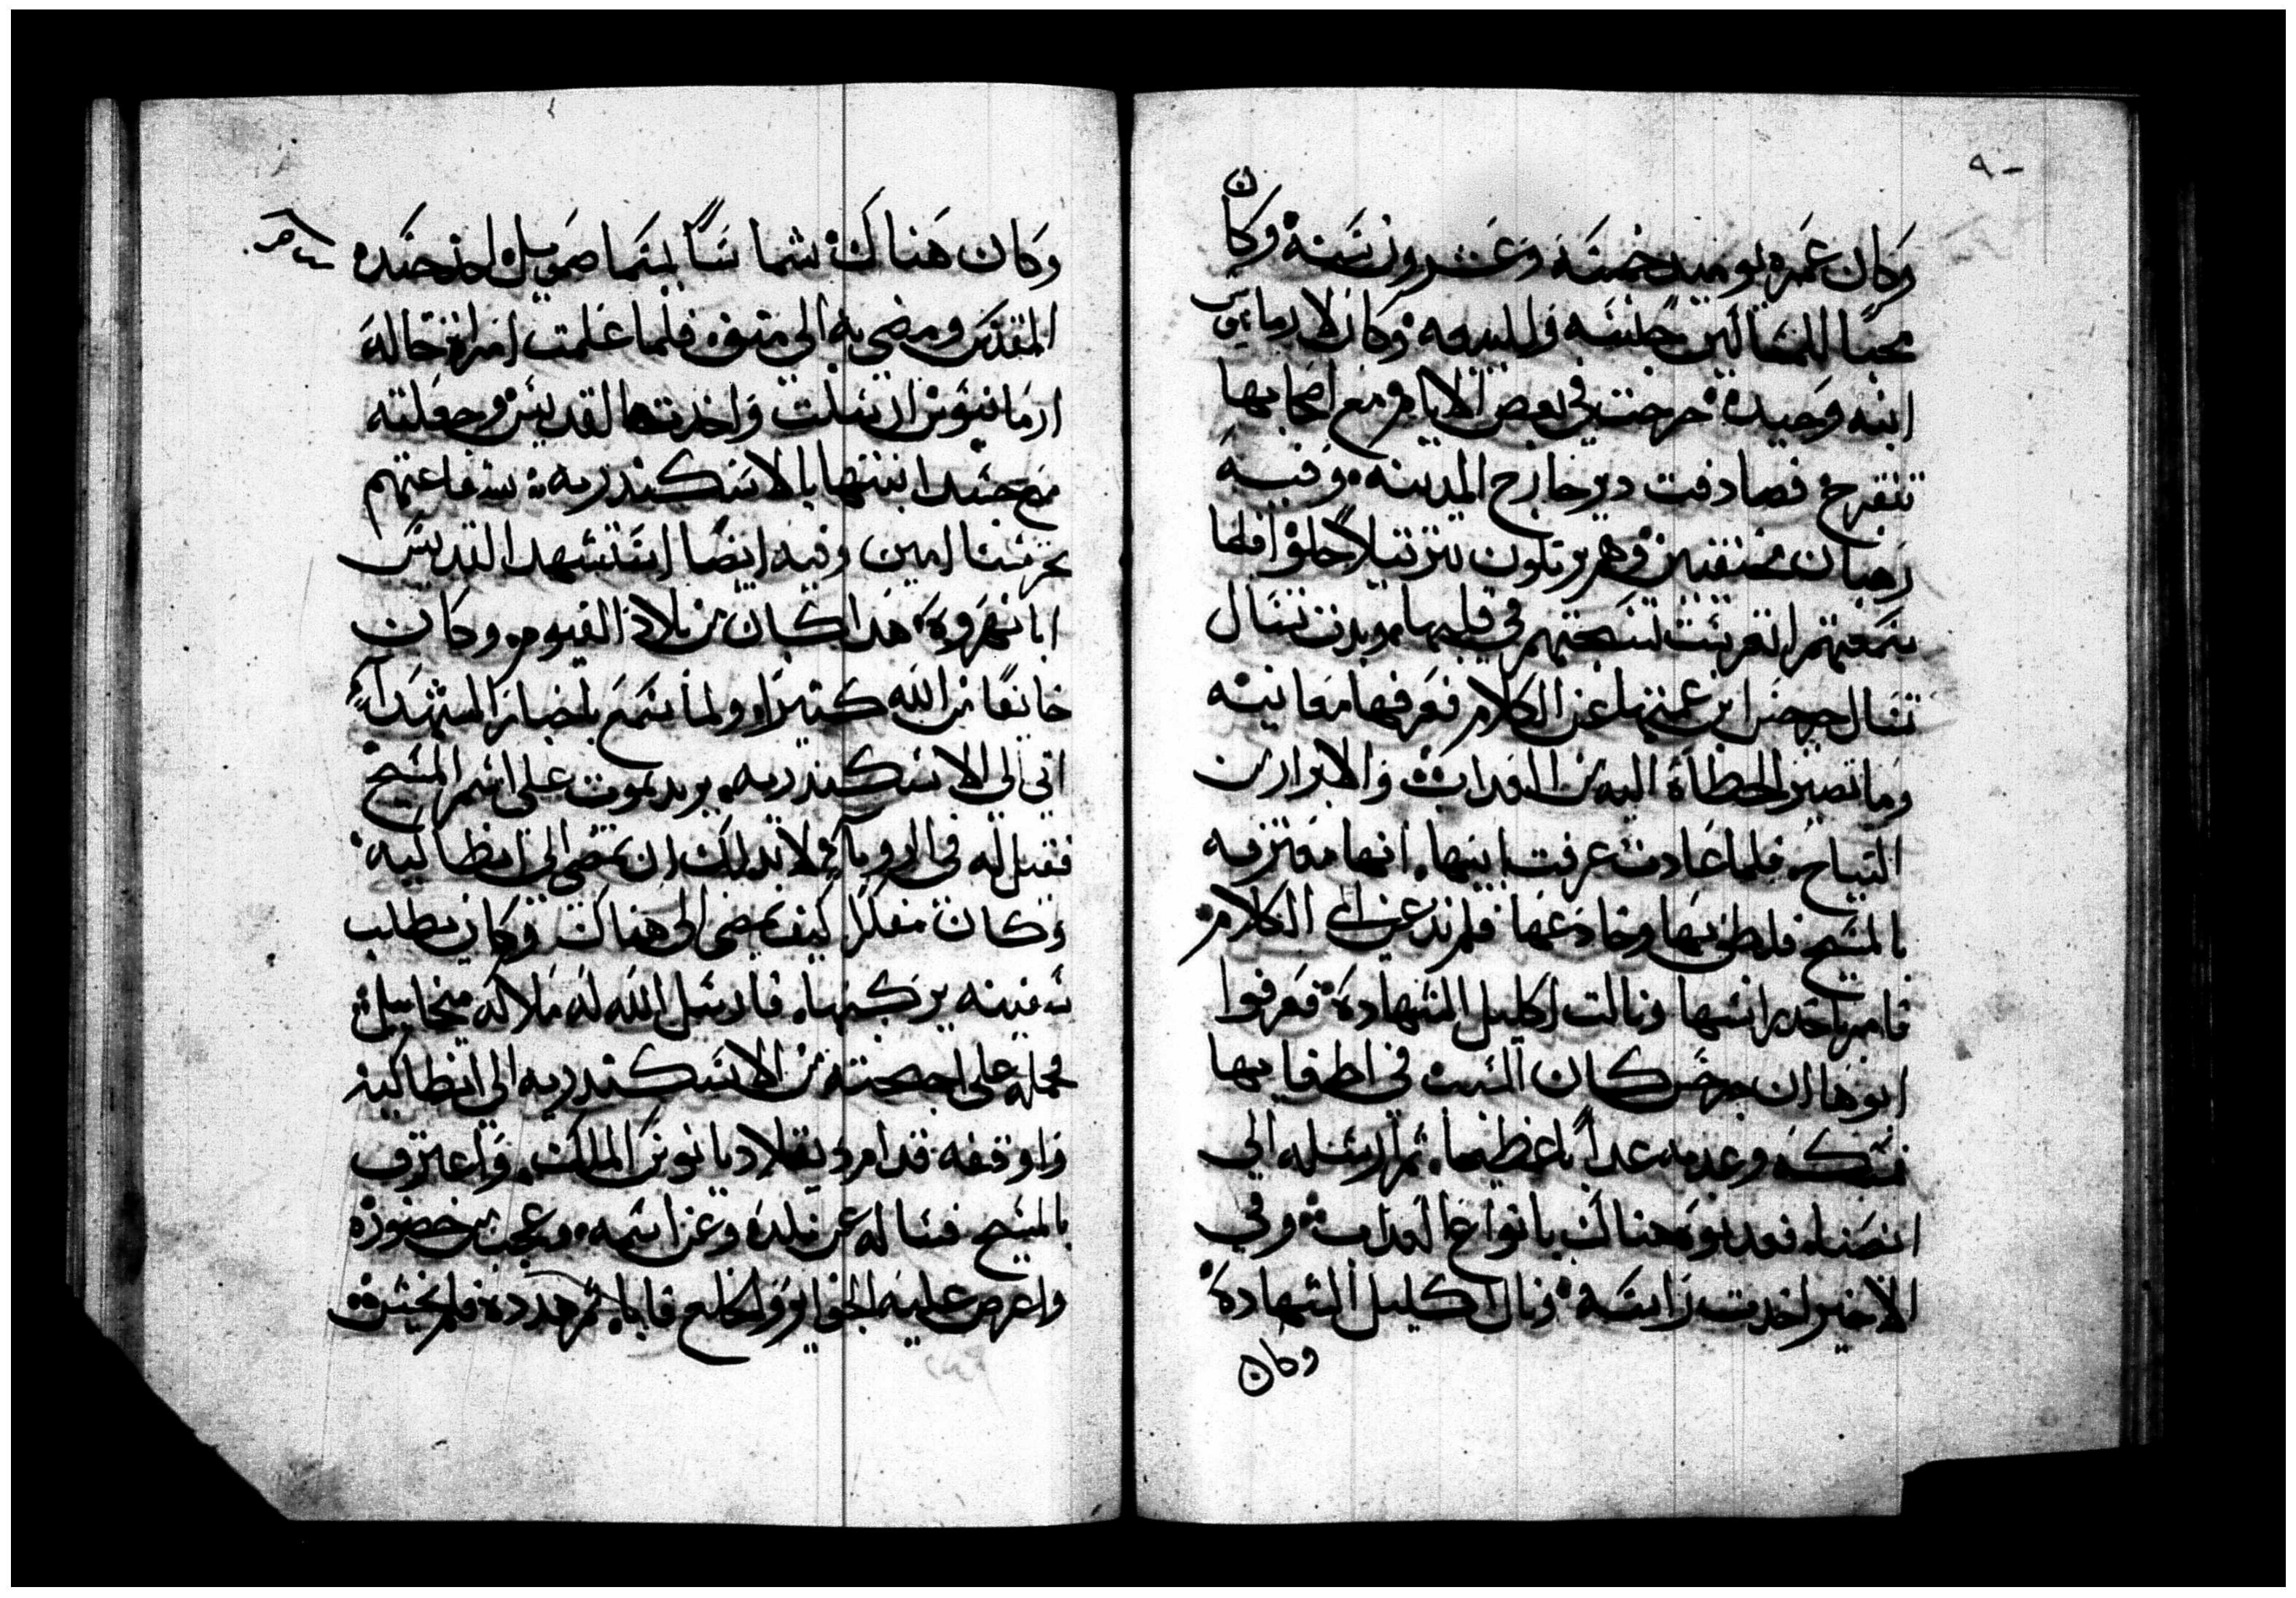 ٩٠
وكان عمره يوميد خمسة وعشرون سنة وكان
محبًا للمساكين جلسته والبيعه وكان لارمانيوس
ابنه وحيده خرجت في بعض الايام مع اصحابها
تتفرج فصادفت دير خارج المدينه وفيه
رهبان وهم يرتلون ترتيلاً حلو فلما
سمعتهم تعزيت لتسبحتهم في قلبها وبدت تسال
تسال جرجس ابن عمتها عن الكلام فعرفها معانيه
وما تصير الخطاة اليه من العداب والابرار من
النياح فلما عادت عرفت ابيها انها معترفه
بالمسيح فلطف بها وخادعها فلم ترد عن الكلام
فامر باخد راسها ونالت اكليل الشهادة فعرفوا
ابوها ان جرجس كان السبب في اطغايها
فمسكه وعدبه عداباً عظيما ثم ارسله الى
انصنا فعدبوه هناك بانواع العداب وفي
الاخير اخدت راسه ونال اكليل الشهادة
وكان
وكان هناك شماسًا يسما صمويل اخد جسده
المقدس ومضى به الى منف فلما علمت امراة خاله
ارمانيوس ارسلت واخدت القديس وجعلته
مع جسد ابنتها بالاسكندريه شفاعتهم
تحرسنا امين وفيه ايضًا استشهد القديس
ابا نهروه هدا كان من بلاد الفيوم وكان
خايفًا من الله كتيرًا ولما سمع باخبار الشهدآء
اتي الي الاسكندريه يريد يموت على اسم المسيح
فقيل له في الرويا لابد لك ان تمضي الى انطاكيه
وكان مفكرًا كيف يمضي الى هناك وكان يطلب
سفينه يركبها فارسل الله له ملاكه ميخاييل
فحمله على اجنحته من الاسكندريه الي انطاكيه
واوقفه قدام دقلاديانوس الملك واعترف
بالمسيح فساله عن بلده وعن اسمه وعجب من حضوره
واعرض عليه الجوايز والخلع فابا ثم هدده فلم يخشى